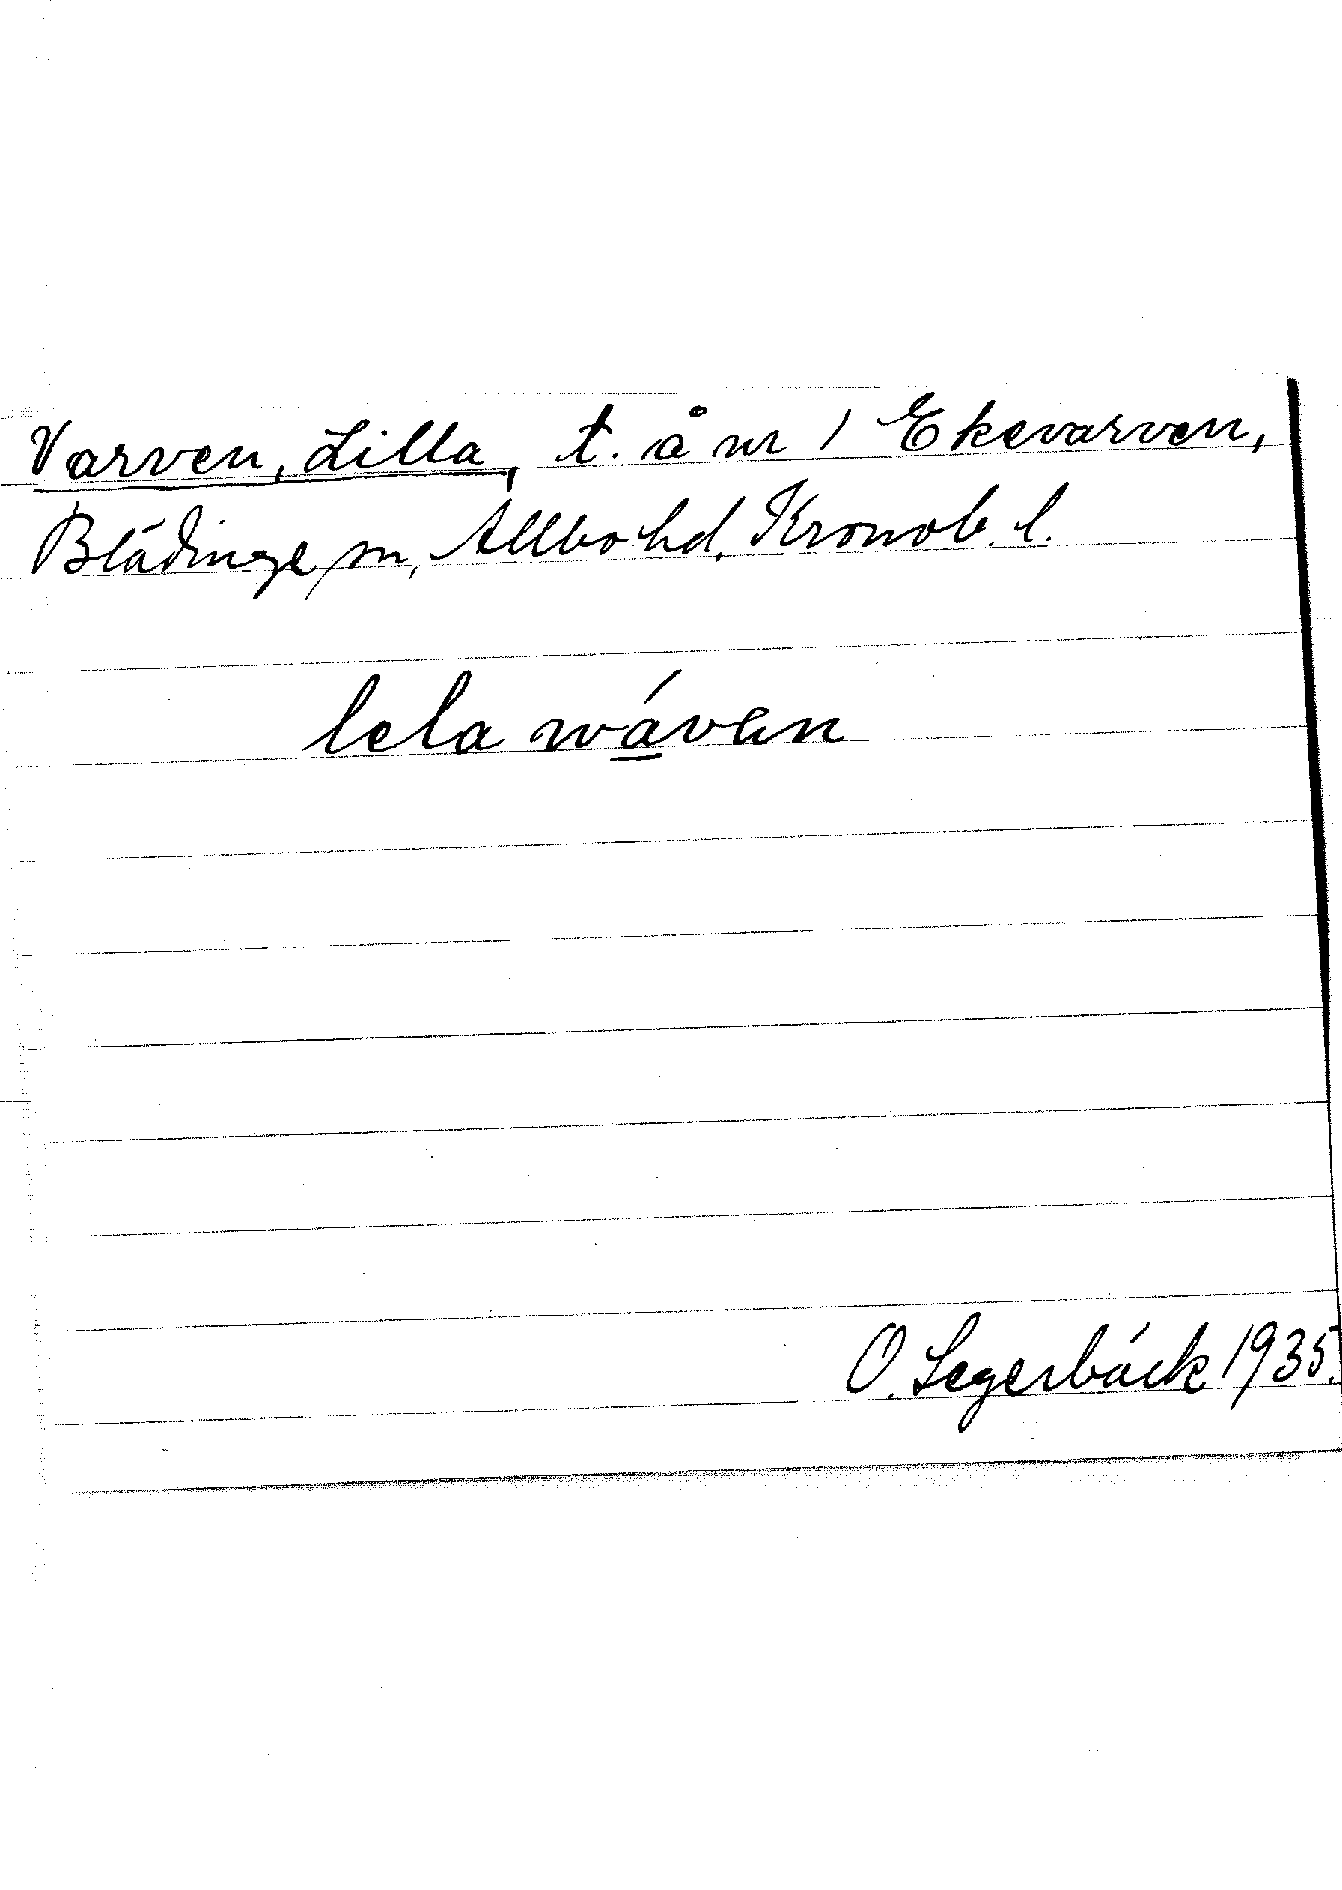 Varven, Lilla, t. å nr 1 Ekevarven,
Blädinge sn, Allbo hd, Kronob. l.
lela wávan
O. Segerbäck 1935.